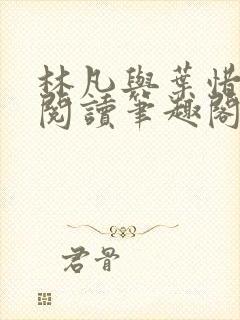 林凡與葉惜
閱讀筆趣閣
君骨